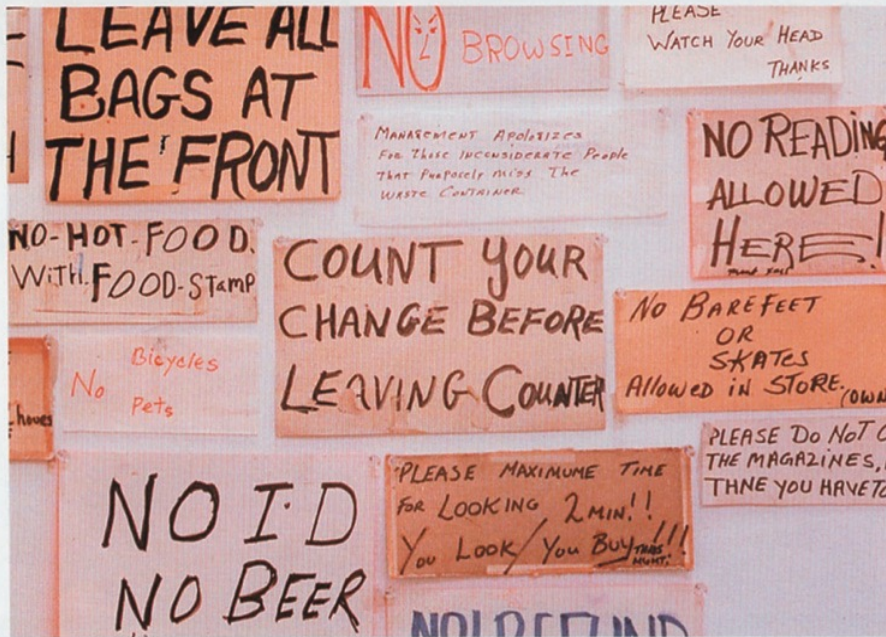 LEAVE ALL
BAGS AT
THE FRONT
NO BROWSING
PLEASE
WATCH YOUR HEAD
THANKS
MANAGEMENT APOLOGIZES
FOR THOSE INCONSIDERATE PEOPLE
THAT PURPOSELY MISS THE
WASTE CONTAINER
NO READING
ALLOWED
HERE!
NO-HOT-FOOD.
WITH.FOOD-STAMP
COUNT YOUR
CHANGE BEFORE
LEAVING COUNTER
NO BAREFEET
OR
SKATES
Allowed in STORE.
Bicycles
No
Pets
PLEASE DO NOT
THE MAGAZINES,
THNE YOU HAVE
NO I.D
NO BEER
PLEASE MAXIMUME TIME
FOR LOOKING 2 MIN!!
You LOOK/You BUY!!!
NO! REFUND